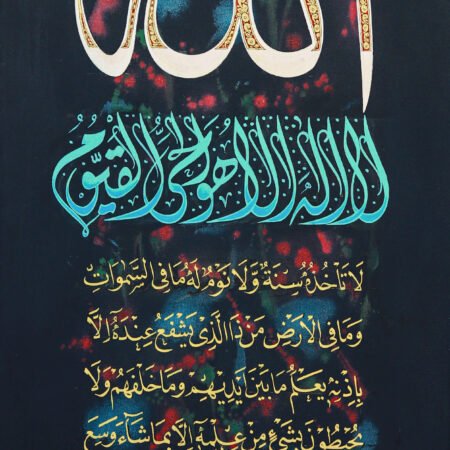 الله
لا اله الا هو الحی القیوم
لَا تَأْخُذُهُ سِنَةٌ وَّلَا نَوْمٌ لَهُ مَا فِی السَّمٰوَاتِ
وَمَا فِی الْاَرْضِ مَنْ ذَا الَّذِیْ یَشْفَعُ عِنْدَهٗ اِلَّا
بِاِذْنِهٖ یَعْلَمُ مَا بَیْنَ یَدِیْهِمْ وَمَا خَلْفَهُمْ وَلَا
یُحِیْطُوْنَ بِشَیْءٍ مِنْ عِلْمِهٖ اِلَّا بِمَا شَآءَ وَسِعَ